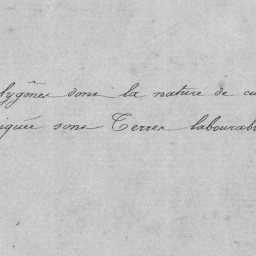 lygônes dont la nature de cu
iquée sous Terres labourab